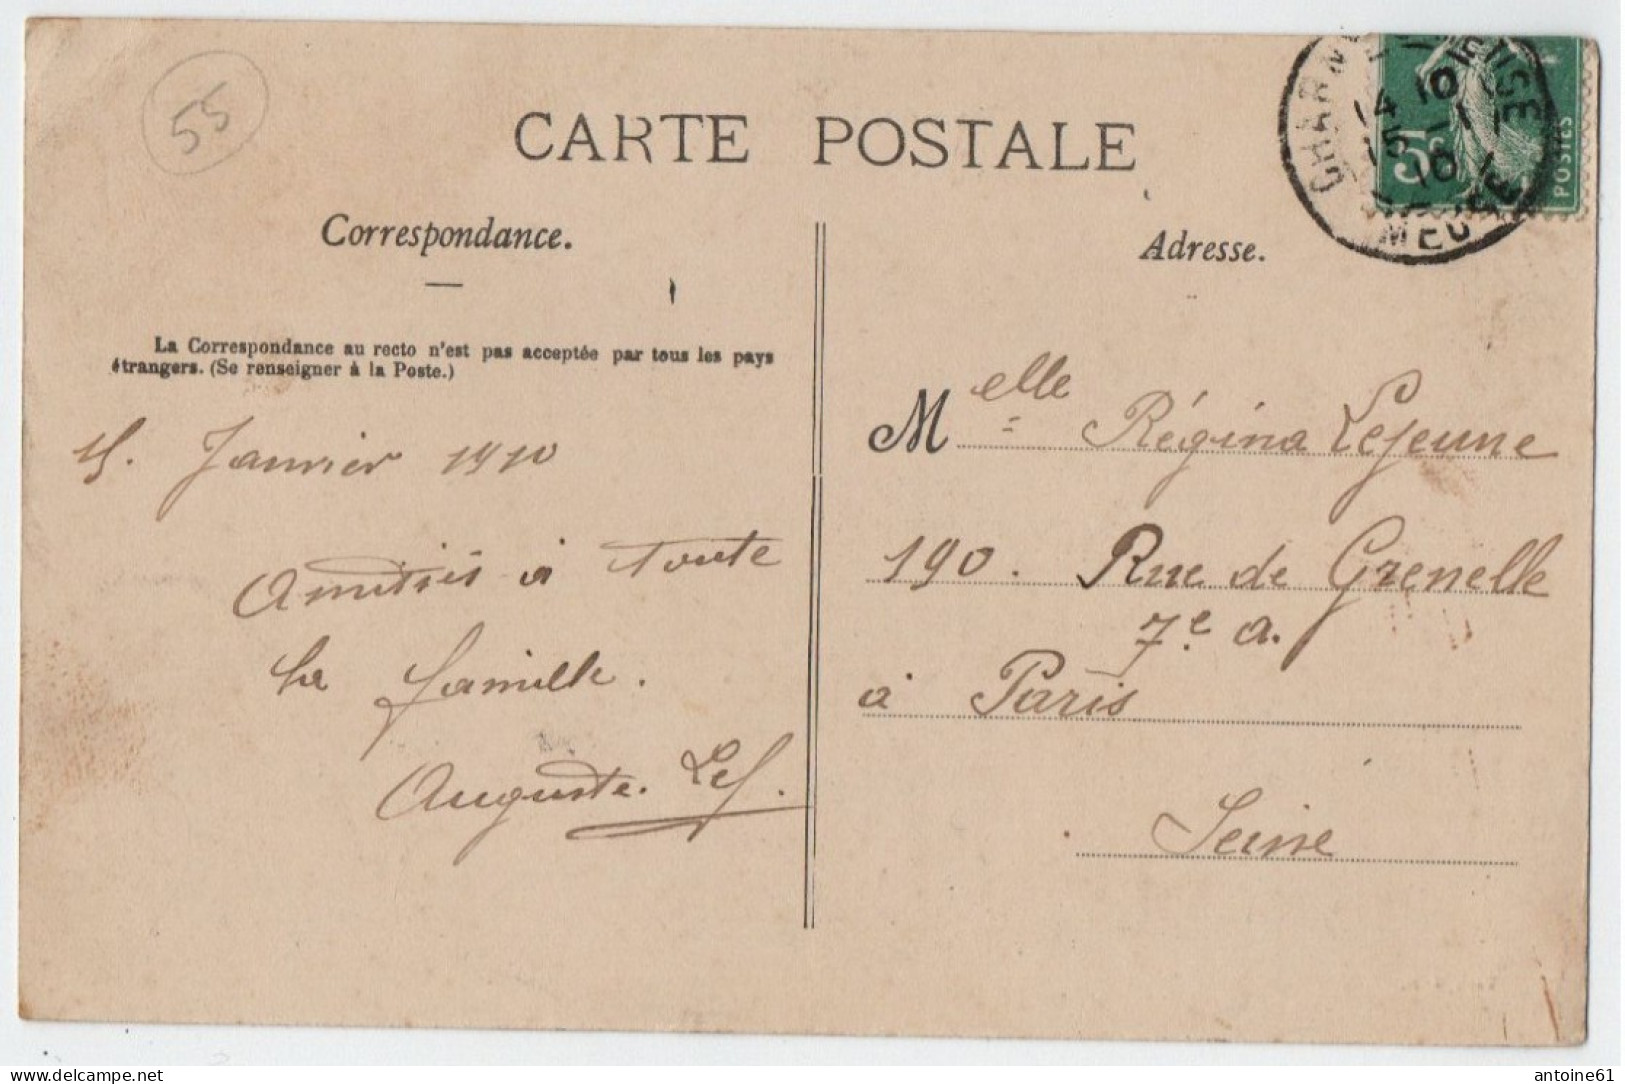 55
CARTE POSTALE
Correspondance.
Adresse.
La Correspondance au recto n'est pas acceptée par tous les pays
étrangers. (Se renseigner à la Poste.)
15. Janvier 1910
Amitiés à toute
la famille.
Auguste. Lej.
Melle Régina Lejeune
190. Rue de Grenelle
7e a.
à Paris
Seine
14 10
15 -1
10
MEUSE
5c
POSTES
antoine61